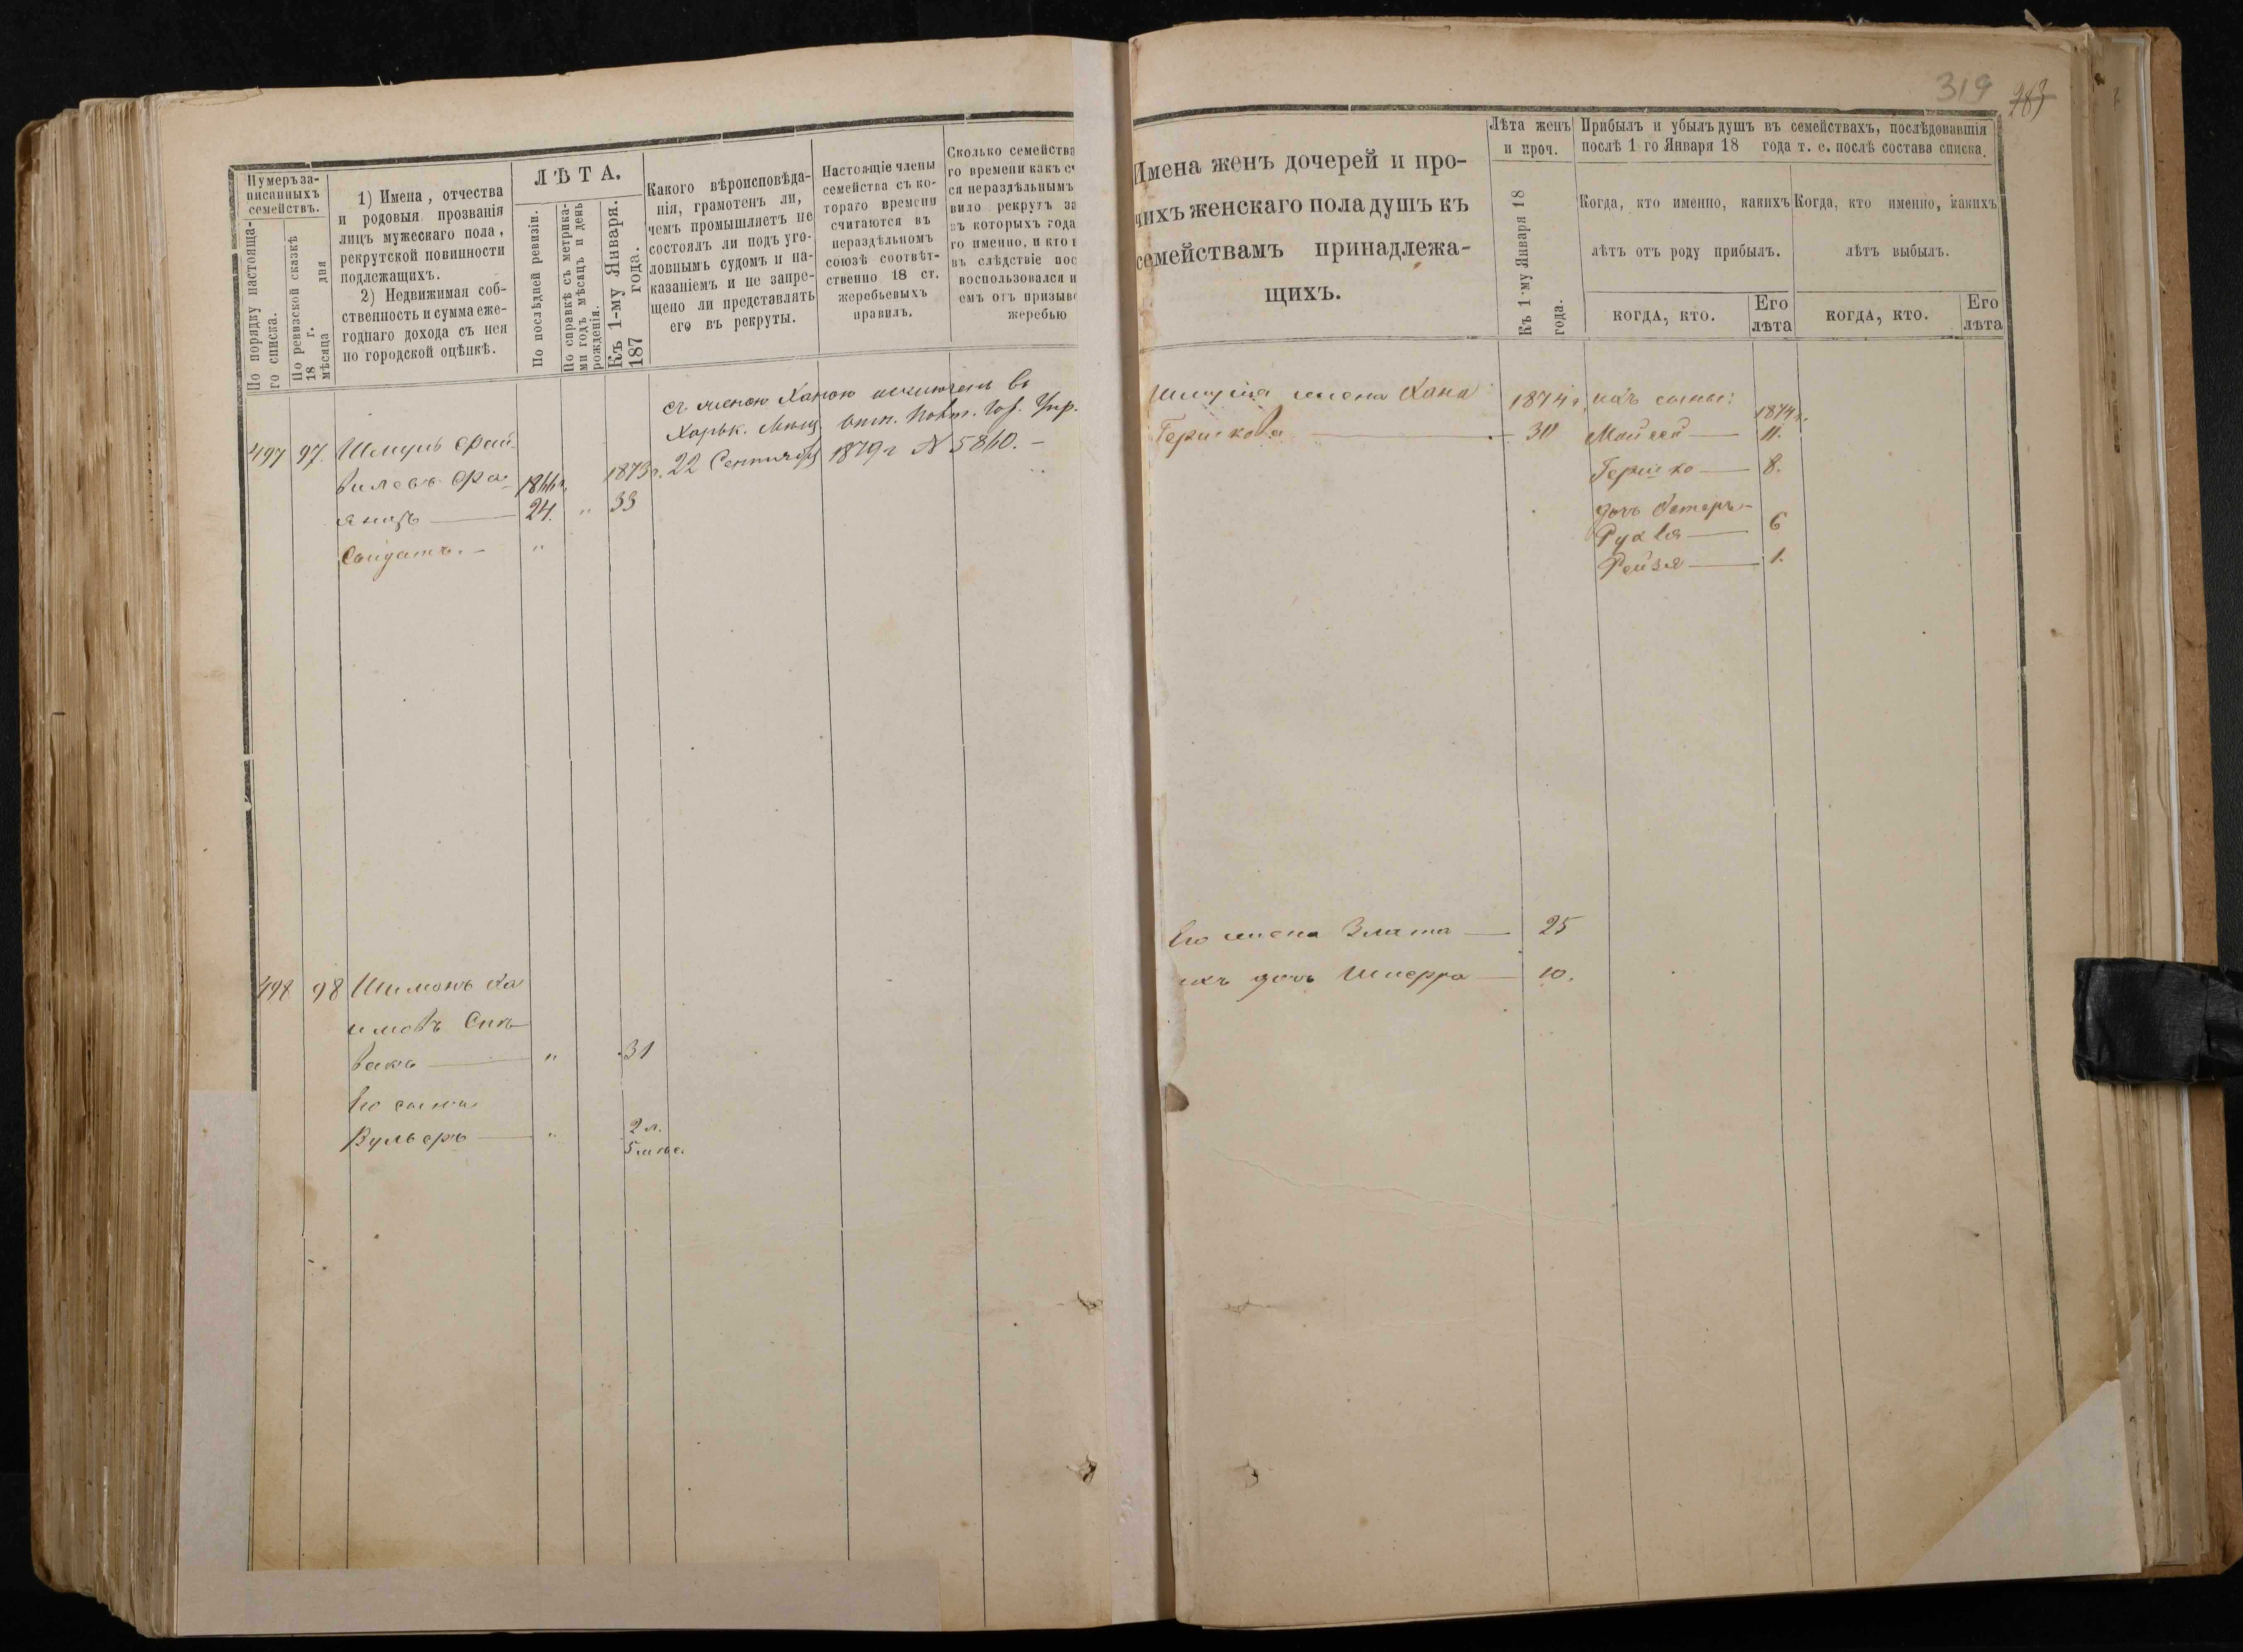 319
383
Нумеръ за-
писанныхъ
семействъ.
По порядку настояща-
го списка.
По ревизской сказкѣ
18 г.
мѣсяца дня
1) Имена, отчества
и родовыя прозванія
лицъ мужескаго пола,
рекрутской повинности
подлежащихъ.
2) Недвижимая соб-
ственность и сумма еже-
годнаго дохода съ нея
по городской оцѣнкѣ.
ЛѢТА.
По послѣдней ревизіи.
По справкѣ съ метрика-
ми годъ мѣсяцъ и день
рожденія.
Къ 1-му Января.
187 года.
Какого вѣроисповѣда-
нія, грамотенъ ли,
чемъ промышляетъ не
состоялъ ли подъ уго-
ловнымъ судомъ и на-
казаніемъ и не запре-
щено ли представлять
его въ рекруты.
Настоящіе члены
семейства съ ко-
тораго времени
считаются въ
нераздѣльномъ
союзѣ соотвѣт-
ственно 18 ст.
жеребьевыхъ
правилъ.
Сколько семейства
го времени какъ сч
ся нераздѣльнымъ
вило рекрутъ за
въ которыхъ года
го именно, и кто
въ слѣдствіе пос
воспользовался и
емъ отъ призыв
жеребью
съ женою Ханою исключенъ въ
Харьк. Мѣщ.
22 Сентября 1879 г № 5860. —
497 97. Шмуль
1866 г. 1873 г.
24. " 33
Солдатъ. — "
498 98 Шимонъ Ха
имовъ Спи-
вакъ — " 31
Его сынъ
Вульфъ — " 2 л.
5 мѣс.
Имена женъ дочерей и про-
чихъ женскаго пола душъ къ
семействамъ принадлежа-
щихъ.
Лѣта женъ
и проч.
Къ 1-му Января 18
года.
Прибылъ и убылъ душъ въ семействахъ, послѣдовавшія
послѣ 1 го Января 18 года т. е. послѣ состава списка.
Когда, кто именно, какихъ
лѣтъ отъ роду прибылъ.
Когда, кто именно, какихъ
лѣтъ выбылъ.
КОГДА, КТО.
Его
лѣта
КОГДА, КТО.
Его
лѣта
Шмуля жена Хана 1874 г. ихъ сыны: 1874 г.
Гершкова — 30 Мойсей — 11.
Гершко — 8.
дочь Эстеръ-
Рухля — 6
Рейзя — 1.
Его жена Злата — 25
ихъ дочь Шперра — 10.